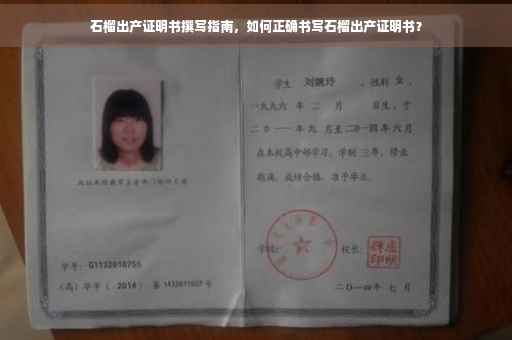 石榴出产证明书撰写指南，如何正确书写石榴出产证明书？
学生 刘婉玲 ，性别 女 ，
一九九六 年 二 月 日生，于
二〇一一 年 九 月至 二〇一四 年 六 月
在本校高中部学习，学制 三 年，修业
期满，成绩合格，准予毕业。
学校： 校长：
二〇一四 年 七 月
学号： G1132010755
（高）毕字（ 2014 ）第 1432011027 号